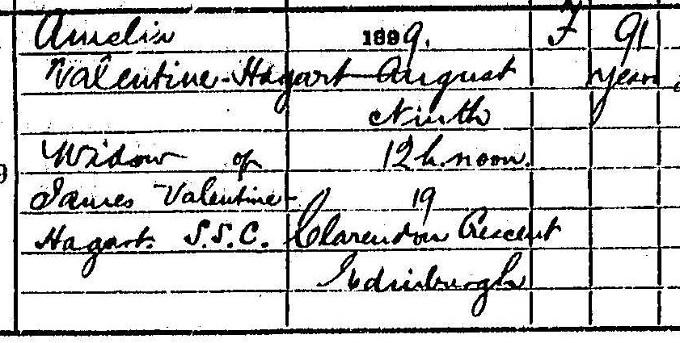 Amelia 1899. F 91
Valentine-Hagart August years
Ninth
Widow of 12 h. noon.
James Valentine- 19
Hagart S.S.C. Clarendon Crescent
Edinburgh